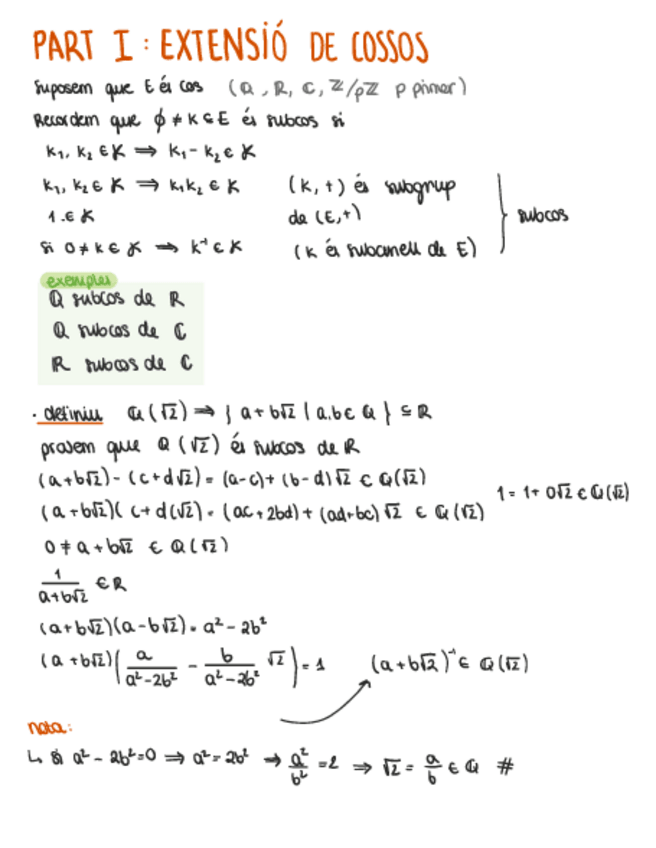 PART I : EXTENSIÓ DE COSSOS
Suposem que E és cos (Q, R, C, Z/pZ p primer)
Recordem que ∅ ≠ K ⊆ E és subcos si
k₁, k₂ ∈ K ⇒ k₁ - k₂ ∈ K
k₁, k₂ ∈ K ⇒ k₁k₂ ∈ K (K, +) és subgrup
1 ∈ K de (E,+) subcos
Si 0 ≠ k ∈ K ⇒ k⁻¹ ∈ K (K és subanell de E)
exemples
Q subcos de R
Q subcos de C
R subcos de C
· definiu Q(√2) ⇒ { a + b√2 | a,b ∈ Q } ⊆ R
provem que Q(√2) és subcos de R
(a+b√2) - (c+d√2) = (a-c) + (b-d)√2 ∈ Q(√2)
1 = 1 + 0√2 ∈ Q(√2)
(a+b√2)( c+d(√2) = (ac+2bd) + (ad+bc)√2 ∈ Q(√2)
0 ≠ a + b√2 ∈ Q(√2)
1/(a+b√2) ∈ R
(a+b√2)(a-b√2) = a² - 2b²
(a+b√2)( a/(a²-2b²) - b/(a²-2b²) √2 ) = 1 (a+b√2)⁻¹ ∈ Q(√2)
nota:
↳ Si a² - 2b² = 0 ⇒ a² = 2b² → a²/b² = 2 ⇒ √2 = a/b ∈ Q #